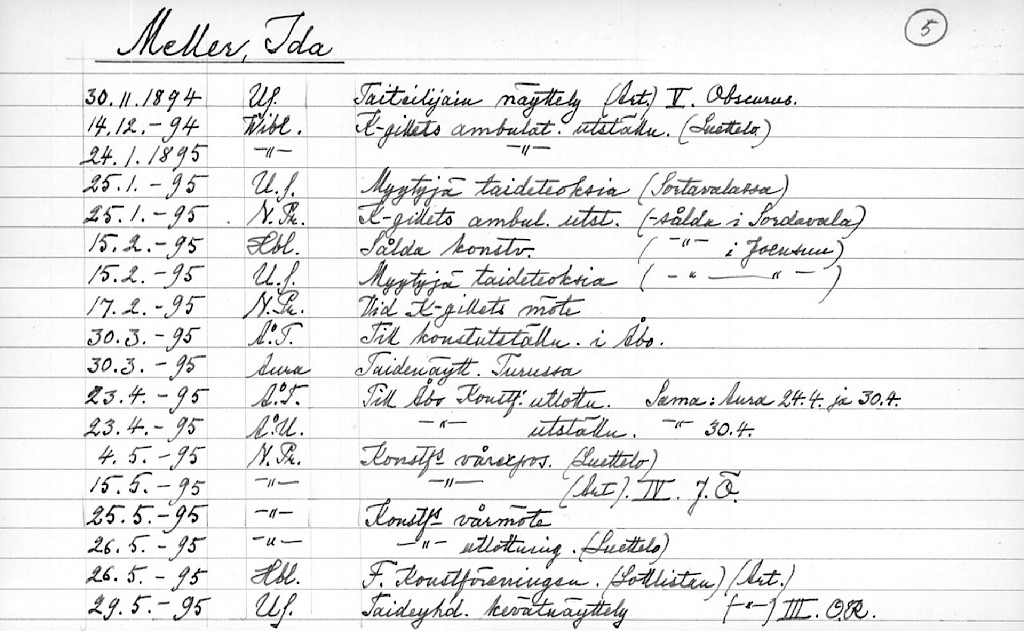 5
Meller, Ida
30.11.1894 U.S. Taiteilijain näyttely (Art.) V. Obscurus.
14.12.-94 Wibl. K-gillets ambulat. utställn. (Luettelo)
24.1.1895 -"- -"-
25.1.-95 U.S. Myytyjä taideteoksia (Sortavalassa)
25.1.-95 N.Pr. K-gillets ambul. utst. (-sålda i Sordavala)
15.2.-95 Hbl. Sålda konstv. (-"- i Joensuu)
15.2.-95 U.S. Myytyjä taideteoksia (-"- -"-)
17.2.-95 N.Pr. Vid K-gillets möte
30.3.-95 Å.T. Till konstutställn. i Åbo.
30.3.-95 Aura Taidenäytt. Turussa
23.4.-95 Å.T. Till Åbo Konstf. utlottn. Sama: Aura 24.4. ja 30.4.
23.4.-95 Å.U. -"- utställn. -"- 30.4.
4.5.-95 N.Pr. Konstfs vårexpos. (Luettelo)
15.5.-95 -"- -"- (Art). IV. J.Ö.
25.5.-95 -"- Konstfs vårmöte
26.5.-95 -"- -"- utlottning. (Luettelo)
26.5.-95 Hbl. F. Konstföreningen. (Lottlistan) (Art.)
29.5.-95 U.S. Taideyhd. kevätnäyttely (-"-) III. O.R.